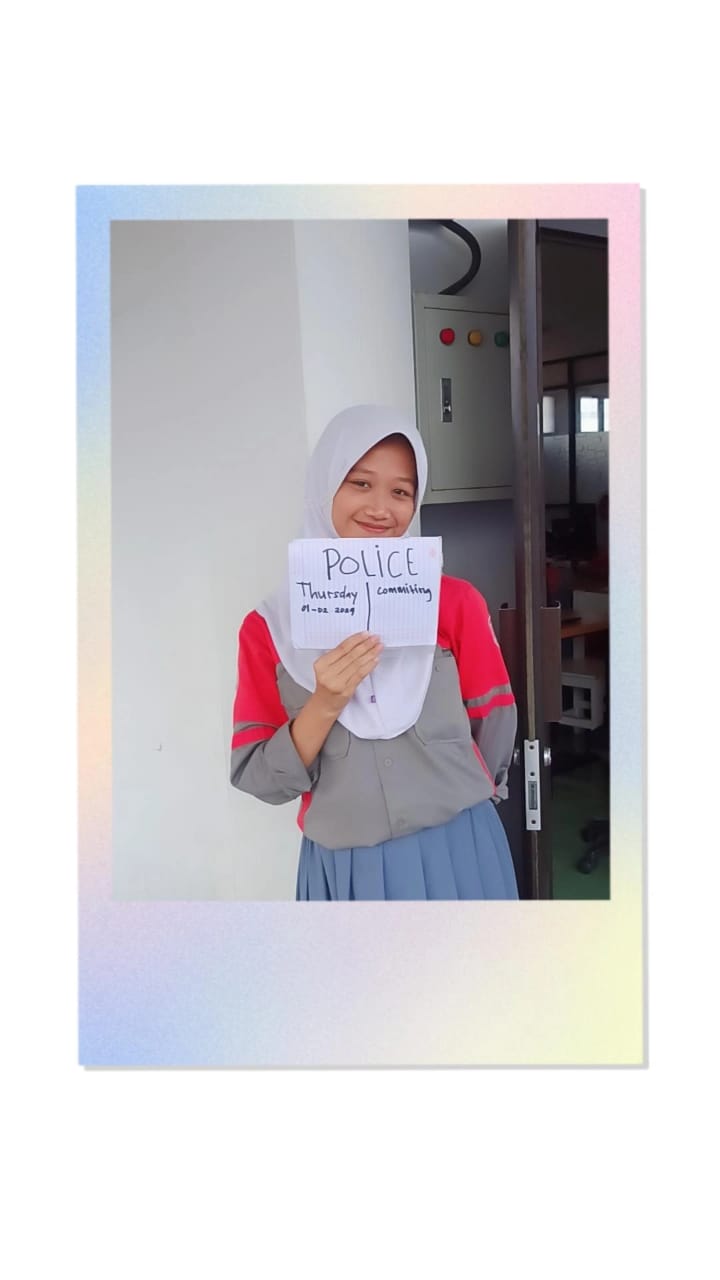 POLICE
Thursday
01-02 2024
commiting